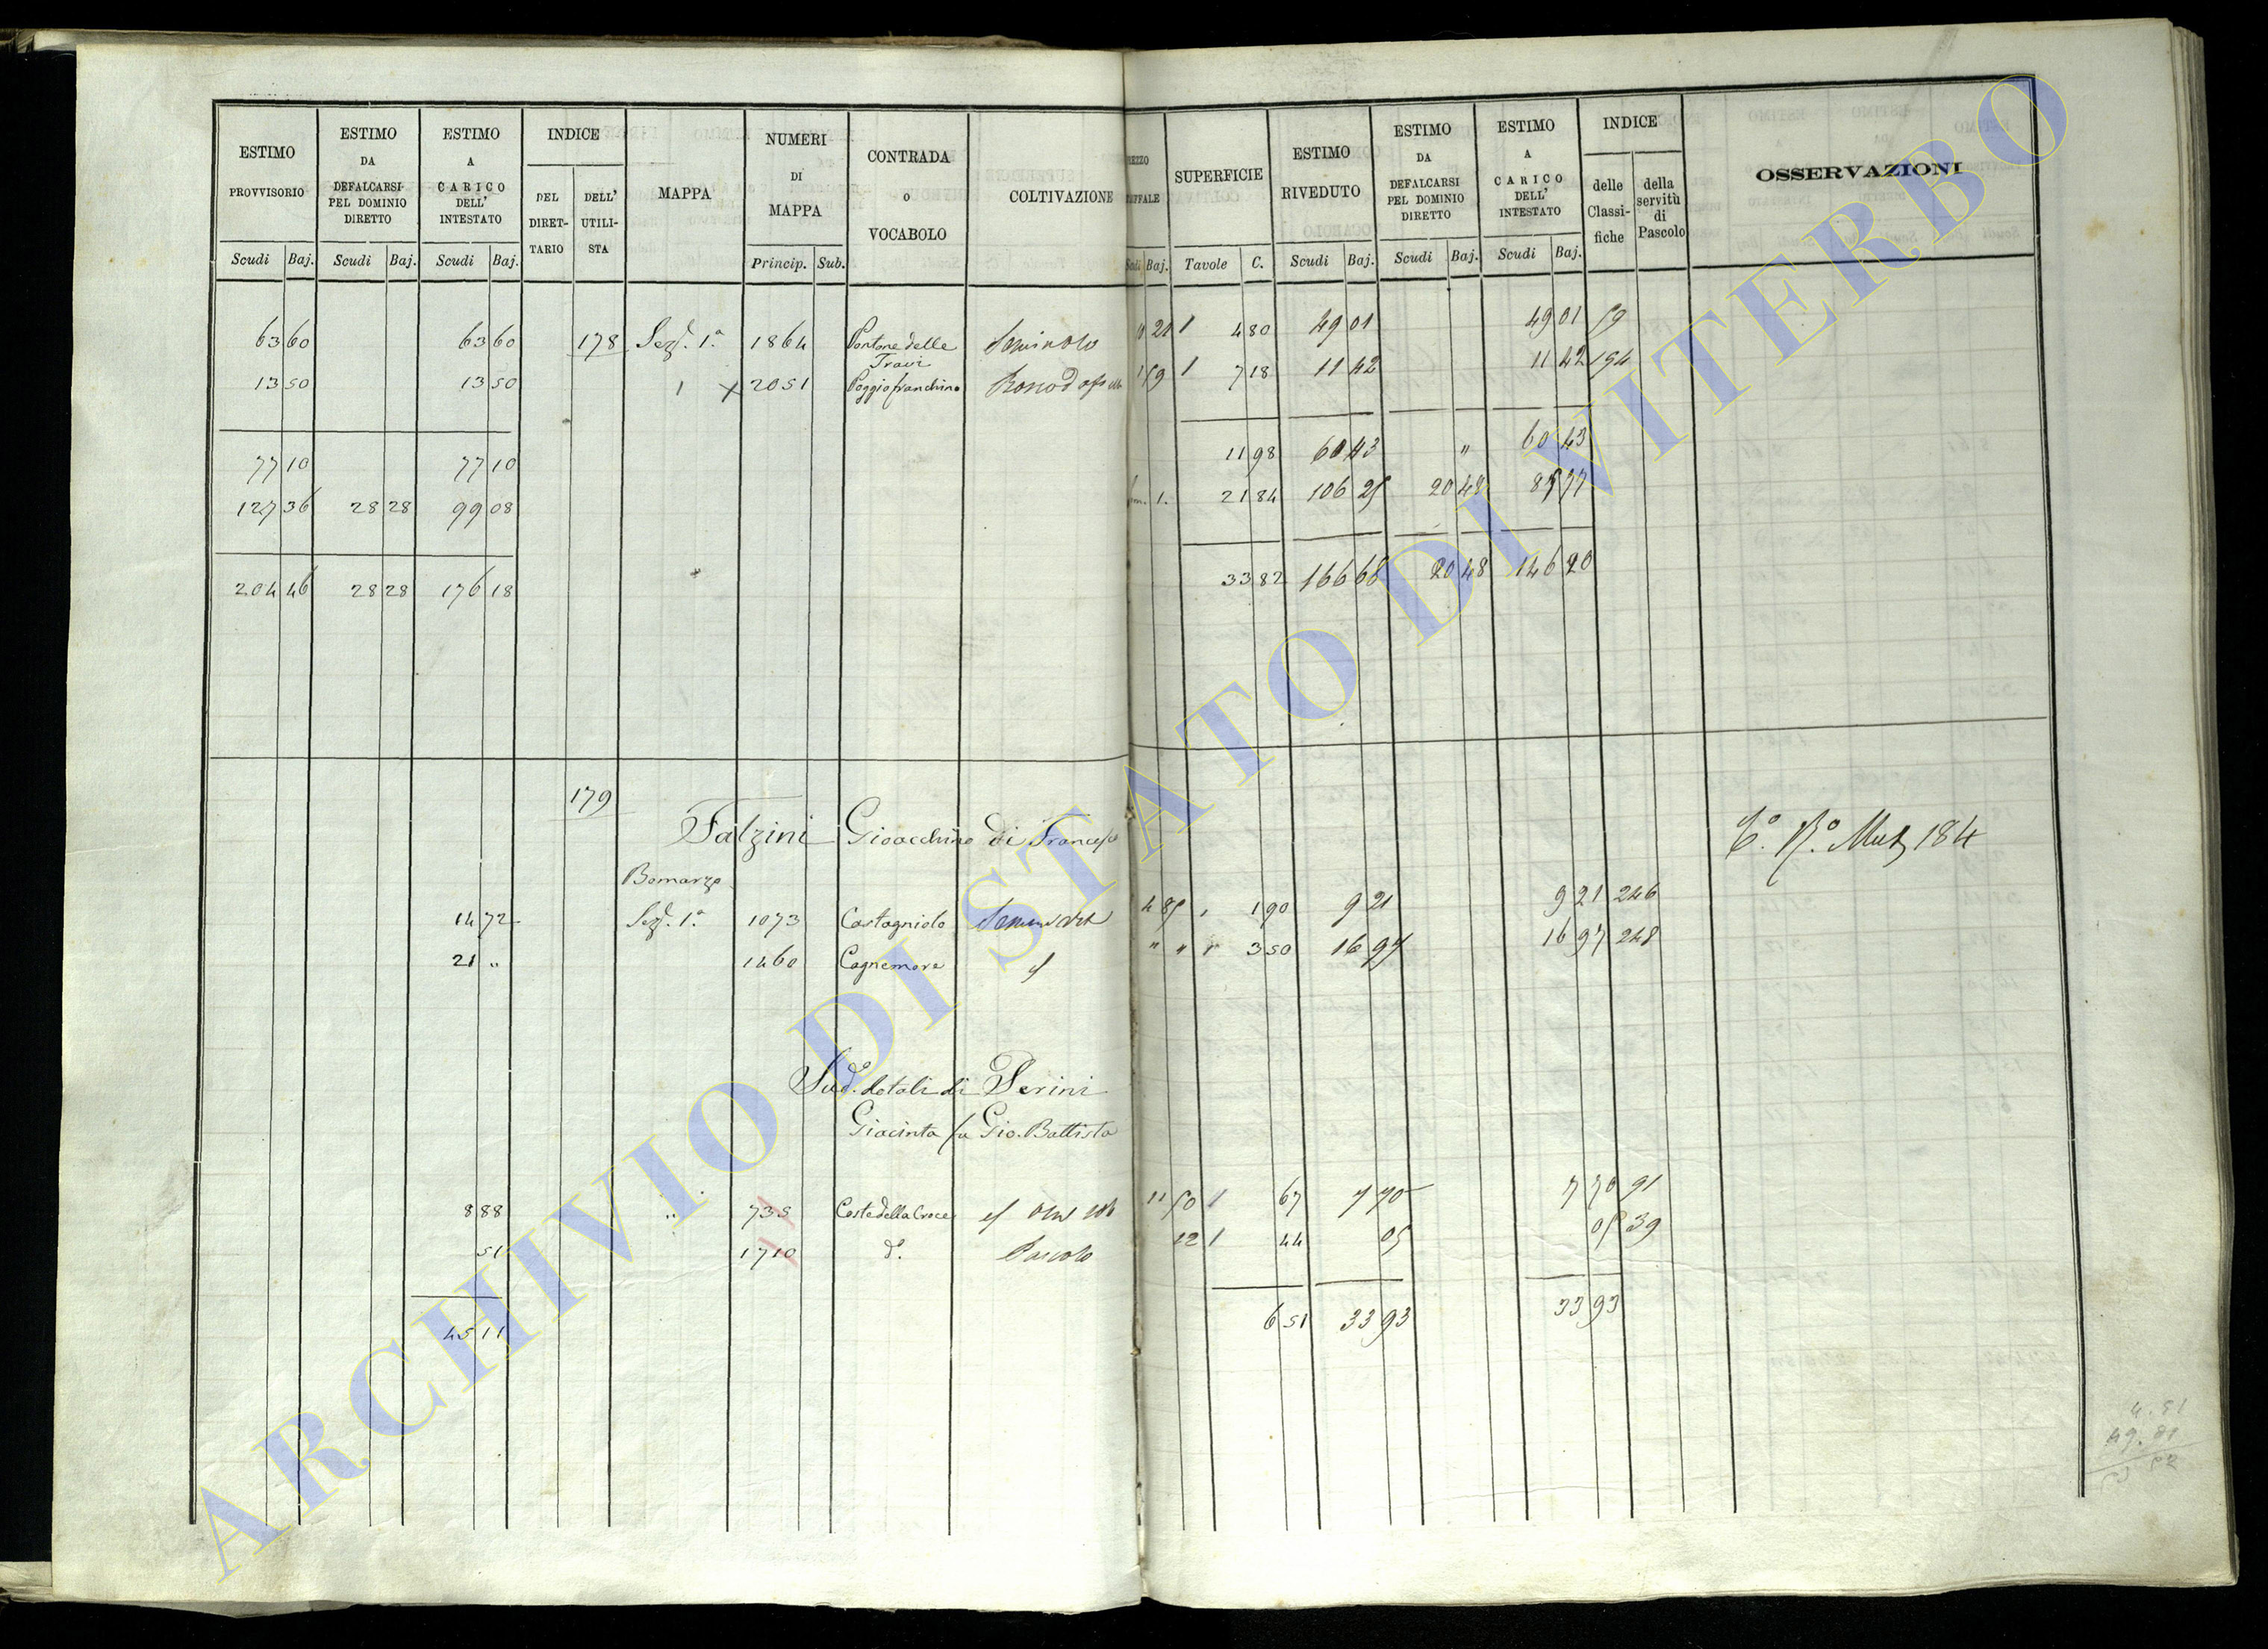 ESTIMO PROVVISORIO
ESTIMO DA DEFALCARSI PEL DOMINIO DIRETTO
ESTIMO A CARICO DELL' INTESTATO
INDICE
DEL DIRETTARIO
DELL' UTILISTA
MAPPA
NUMERI DI MAPPA
CONTRADA o VOCABOLO
COLTIVAZIONE
SUPERFICIE
ESTIMO RIVEDUTO
ESTIMO DA DEFALCARSI PEL DOMINIO DIRETTO
ESTIMO A CARICO DELL' INTESTATO
INDICE
delle Classifiche
della servitù di Pascolo
OSSERVAZIONI
Scudi Baj. Scudi Baj. Scudi Baj. Princip. Sub. Baj. Tavole C. Scudi Baj. Scudi Baj. Scudi Baj.
63 60 63 60 178 Sez. 1.a 1864 Pontone delle Travi 1 4 80 49 01 49 01 59
13 50 13 50 1 2051 Poggio franchino 1 7 18 11 42 11 42 154
77 10 77 10 11 98 60 43 " 60 43
127 36 28 28 99 08 1. 21 84 106 25 20 48 85 77
204 46 28 28 176 18 33 82 166 68 20 48 146 20
179
Falzini Gioacchino di Francesco
184
Bomarzo
14 72 Sez. 1.a 1073 Castagnolo 1 90 9 21 9 21 246
21 " 1460 Cagnemora " " 1 3 50 16 97 16 97 248
Sud.o dotali di Perini
Giacinta fu Gio. Battista
8 88 " 735 Coste della Croce 11 50 1 67 7 70 7 70 91
51 1710 d.o Pascolo 12 1 44 05 05 39
45 11 6 51 33 93 33 93
ARCHIVIO DI STATO DI VITERBO